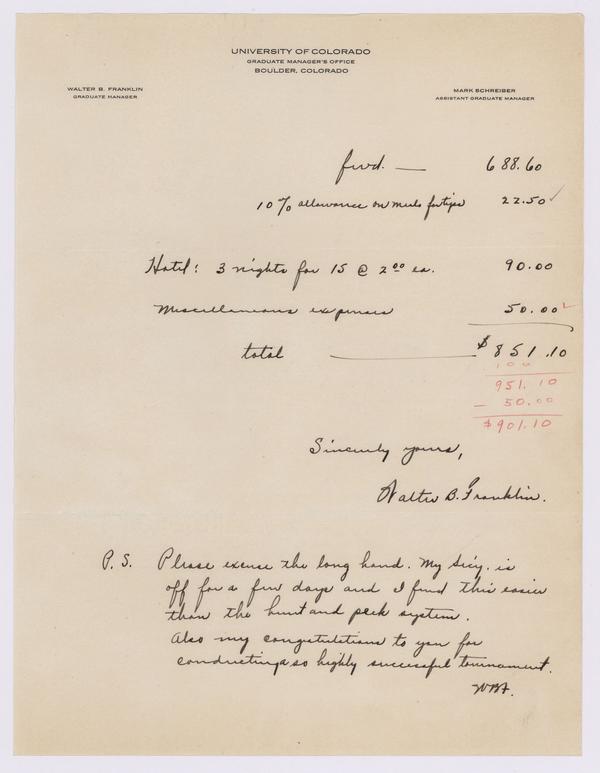 UNIVERSITY OF COLORADO
GRADUATE MANAGER'S OFFICE
BOULDER, COLORADO
WALTER B. FRANKLIN
GRADUATE MANAGER
MARK SCHREIBER
ASSISTANT GRADUATE MANAGER
fwd. — 688.60
10% allowance on meals for tips 22.50 ✓
Hotel: 3 nights for 15 @ 2.00 ea. 90.00
Miscellaneous expenses 50.00
total — $851.10
100
951.10
- 50.00
$901.10
Sincerely yours,
Walter B. Franklin.
P.S. Please excuse the long hand. My Sec'y. is
off for a few days and I find this easier
than the hunt and peck system.
Also my congratulations to you for
conducting so highly successful tournament.
WBF.